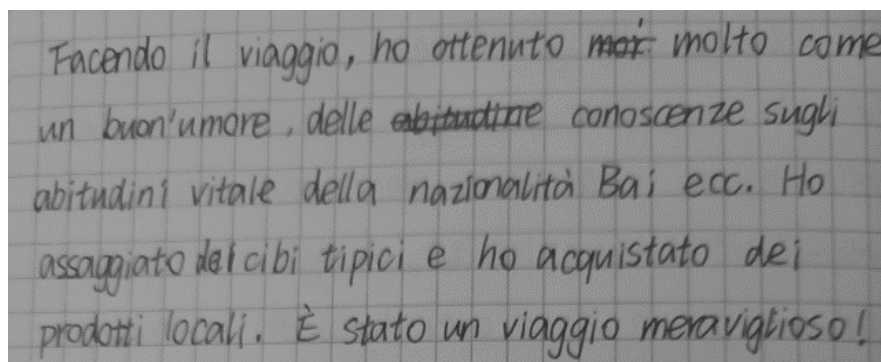 Facendo il viaggio, ho ottenuto molto come
un buon'umore, delle conoscenze sugli
abitudini vitale della nazionalità Bai ecc. Ho
assaggiato dei cibi tipici e ho acquistato dei
prodotti locali. È stato un viaggio meraviglioso!